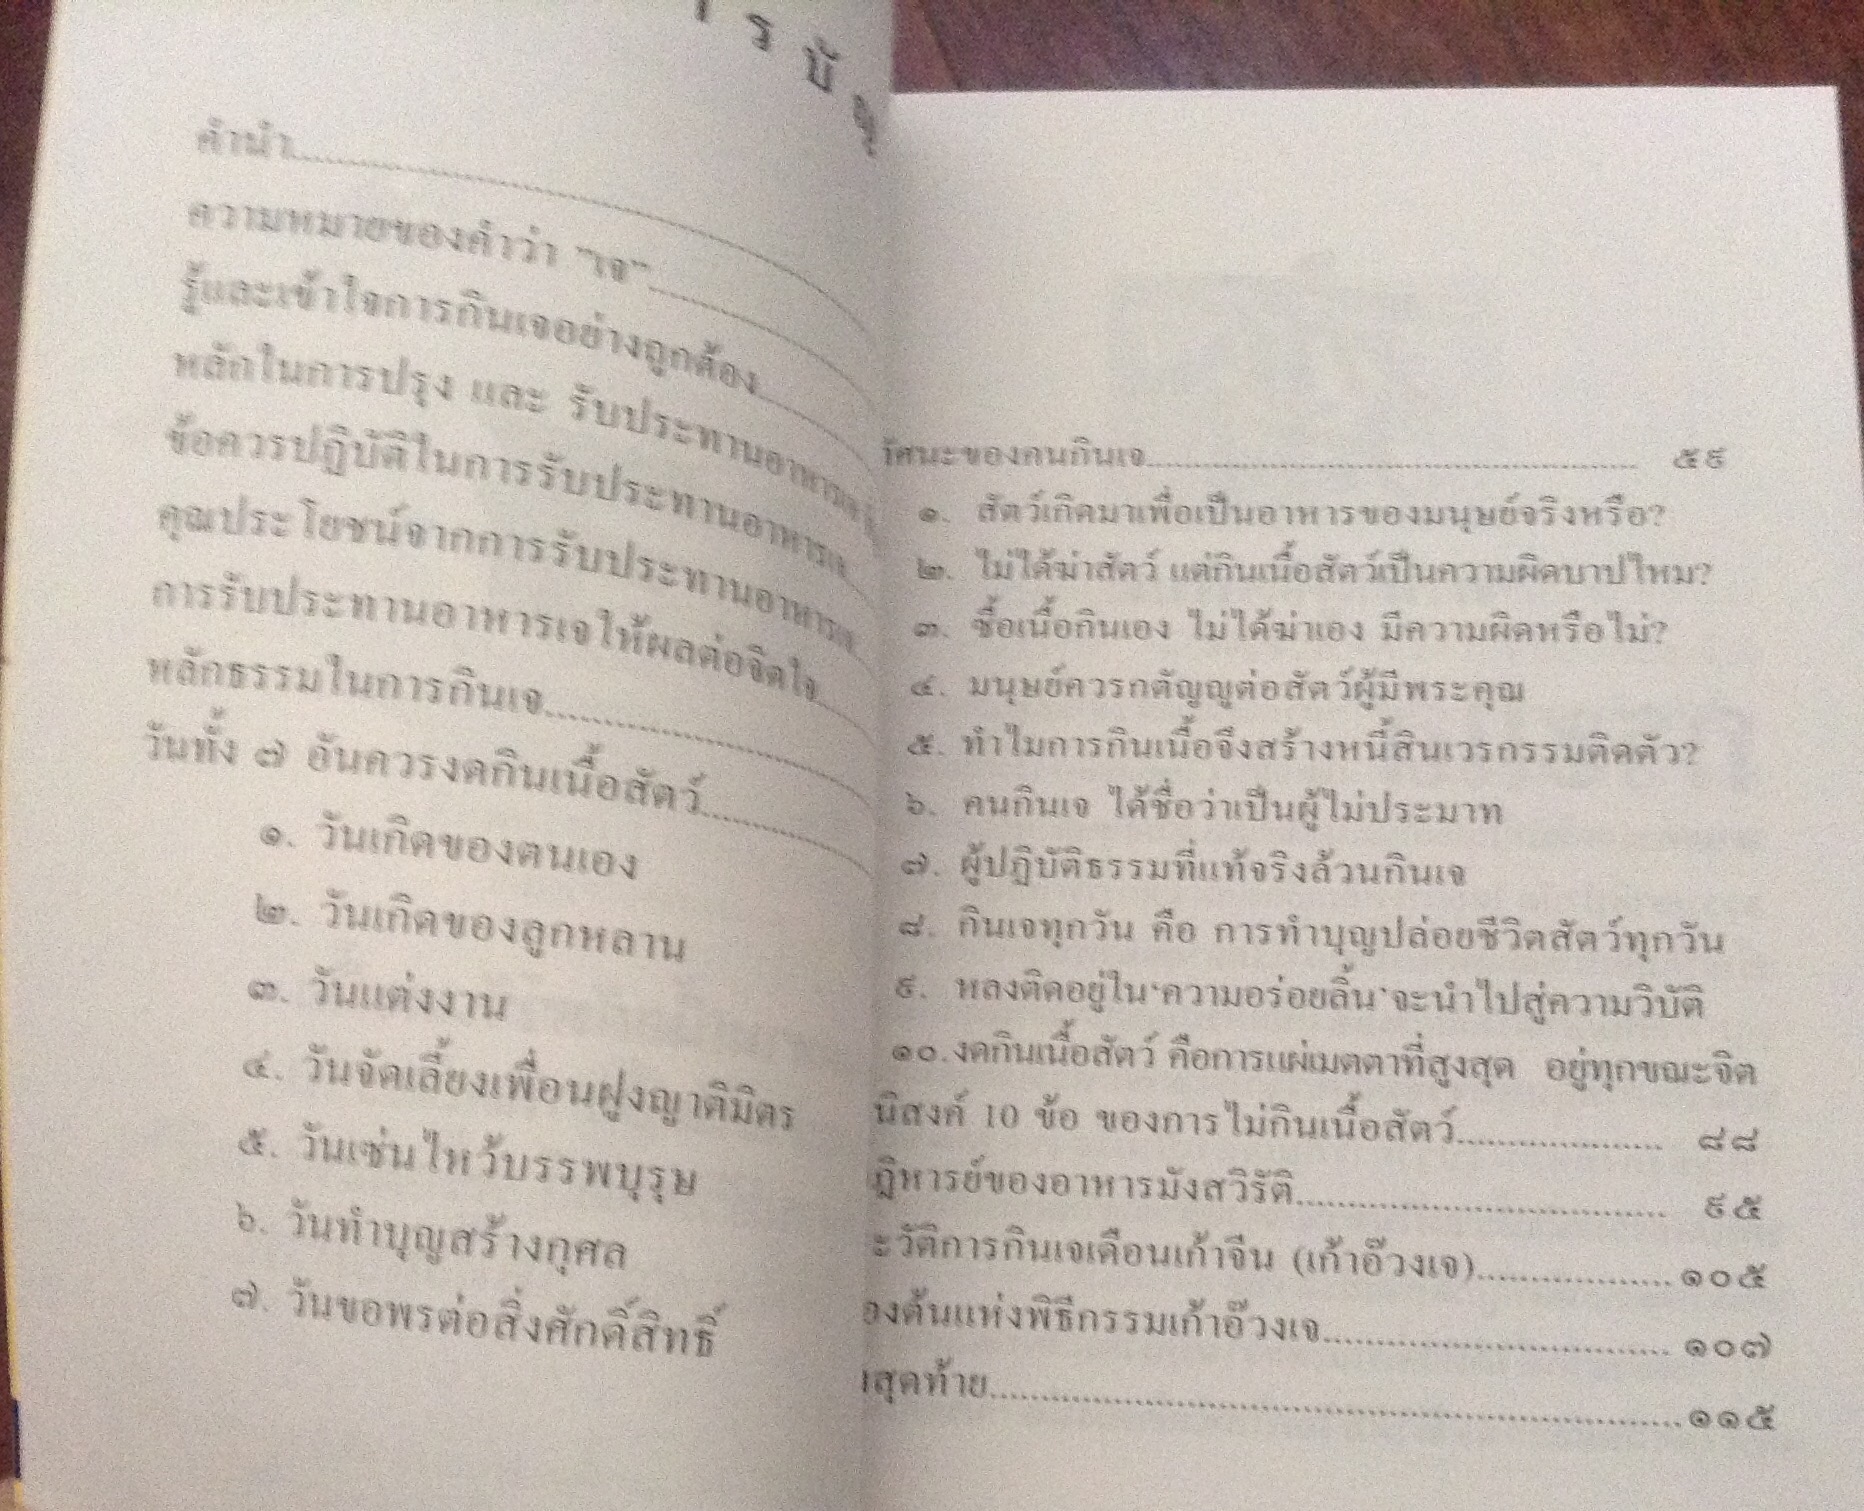 ารบัญ
คำนำ
ความหมายของคำว่า "เจ"
รู้และเข้าใจการกินเจอย่างถูกต้อง
หลักในการปรุง และ รับประทานอาหารเจ
ข้อควรปฏิบัติในการรับประทานอาหารเจ
คุณประโยชน์จากการรับประทานอาหารเจ
การรับประทานอาหารเจให้ผลต่อจิตใจ
หลักธรรมในการกินเจ
วันทั้ง ๗ อันควรงดกินเนื้อสัตว์
๑. วันเกิดของตนเอง
๒. วันเกิดของลูกหลาน
๓. วันแต่งงาน
๔. วันจัดเลี้ยงเพื่อนฝูงญาติมิตร
๕. วันเซ่นไหว้บรรพบุรุษ
๖. วันทำบุญสร้างกุศล
๗. วันขอพรต่อสิ่งศักดิ์สิทธิ์
ทัศนะของคนกินเจ ๕๙
๑. สัตว์เกิดมาเพื่อเป็นอาหารของมนุษย์จริงหรือ?
๒. ไม่ได้ฆ่าสัตว์ แต่กินเนื้อสัตว์เป็นความผิดบาปไหม?
๓. ซื้อเนื้อกินเอง ไม่ได้ฆ่าเอง มีความผิดหรือไม่?
๔. มนุษย์ควรกตัญญูต่อสัตว์ผู้มีพระคุณ
๕. ทำไมการกินเนื้อจึงสร้างหนี้สินเวรกรรมติดตัว?
๖. คนกินเจ ได้ชื่อว่าเป็นผู้ไม่ประมาท
๗. ผู้ปฏิบัติธรรมที่แท้จริงล้วนกินเจ
๘. กินเจทุกวัน คือ การทำบุญปล่อยชีวิตสัตว์ทุกวัน
๙. หลงติดอยู่ใน'ความอร่อยลิ้น'จะนำไปสู่ความวิบัติ
๑๐.งดกินเนื้อสัตว์ คือการแผ่เมตตาที่สูงสุด อยู่ทุกขณะจิต
นิสงค์ 10 ข้อ ของการไม่กินเนื้อสัตว์ ๘๘
ฏิหารย์ของอาหารมังสวิรัติ ๙๕
ะวัติการกินเจเดือนเก้าจีน (เก้าอ๊วงเจ) ๑๐๕
องต้นแห่งพิธีกรรมเก้าอ๊วงเจ ๑๐๗
สุดท้าย ๑๑๕